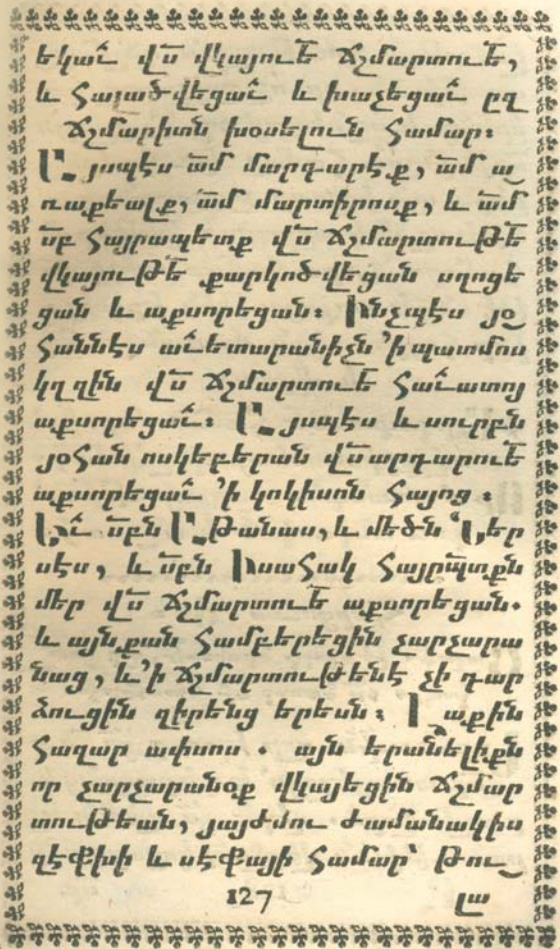 եկաւ̃ վս̃ վկայուե̃ ճշմարտուե̃,
և հալածվեցաւ̃ և խաչեցաւ̃ ըզ
ճշմարիտն խօսելուն համար։
Այսպէս ա̃մ մարգարէք, ա̃մ ա֊
ռաքեալք, ա̃մ մարտիրոսք, և ա̃մ
սբ̃ հայրապետք վս̃ ճշմարտութե̃
վկայութե̃ քարկոծվեցան սղոցե
ցան և աքսորեցան։ Ինչպէս յօ֊
հաննէս աւ̃ետարանիչն ՚ի պատմոս
կղզին վս̃ ճշմարտուե̃ հաւ̃ատոյ
աքսորեցաւ̃։ Այսպէս և սուրբն
յօհան ոսկեբերան վս̃ արդարուե̃
աքսորեցաւ̃ ՚ի կոկիսոն հայոց։
Եւ̃ սբ̃ն Աթանաս, և մեծն Ներ
սէս, և սբ̃ն Իսահակ հայրպ̃տքն
մեր վս̃ ճշմարտուե̃ աքսորեցան.
և այնքան համբերեցին չարչարա
նաց, և ՚ի ճշմարտութենէ չի դար
ձուցին զիրենց երեսն։ Լաքին
հազար ափսոս. այն երանելիքն
որ չարչարանօք վկայեցին ճշմար
տութեան, յայժմու ժամանակիս
զէֆխի և սէֆայի համար՝ թու֊
127 լա